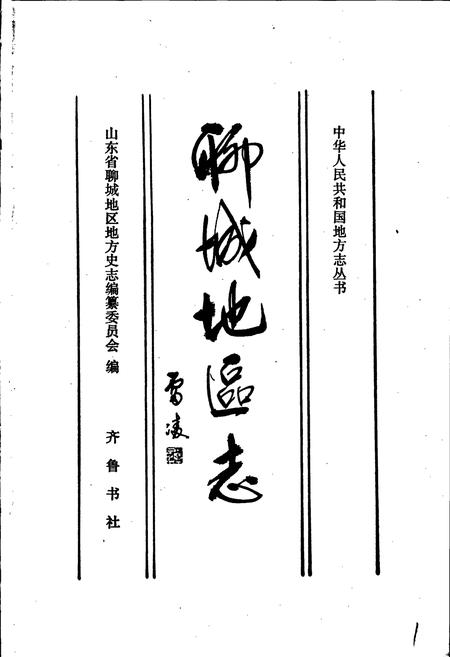 中华人民共和国地方志丛书
聊城地區志
山东省聊城地区地方史志编纂委员会 编
齐鲁书社
1